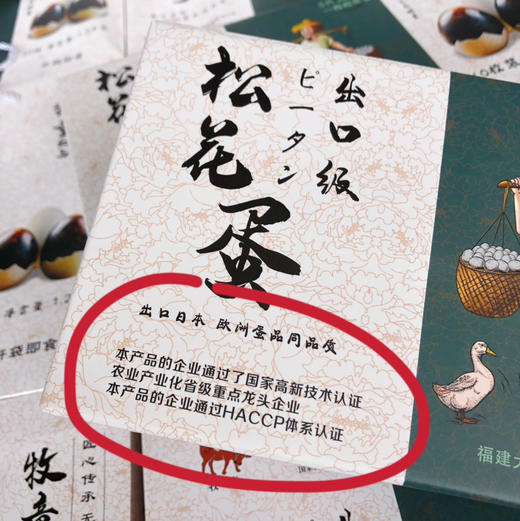 出口级
ピータン
松花蛋
出口日本 欧洲蛋品同品质
本产品的企业通过了国家高新技术认证
农业产业化省级重点龙头企业
本产品的企业通过HACCP体系认证
福建
松花
净含量
袋即食
牧
匠心传承